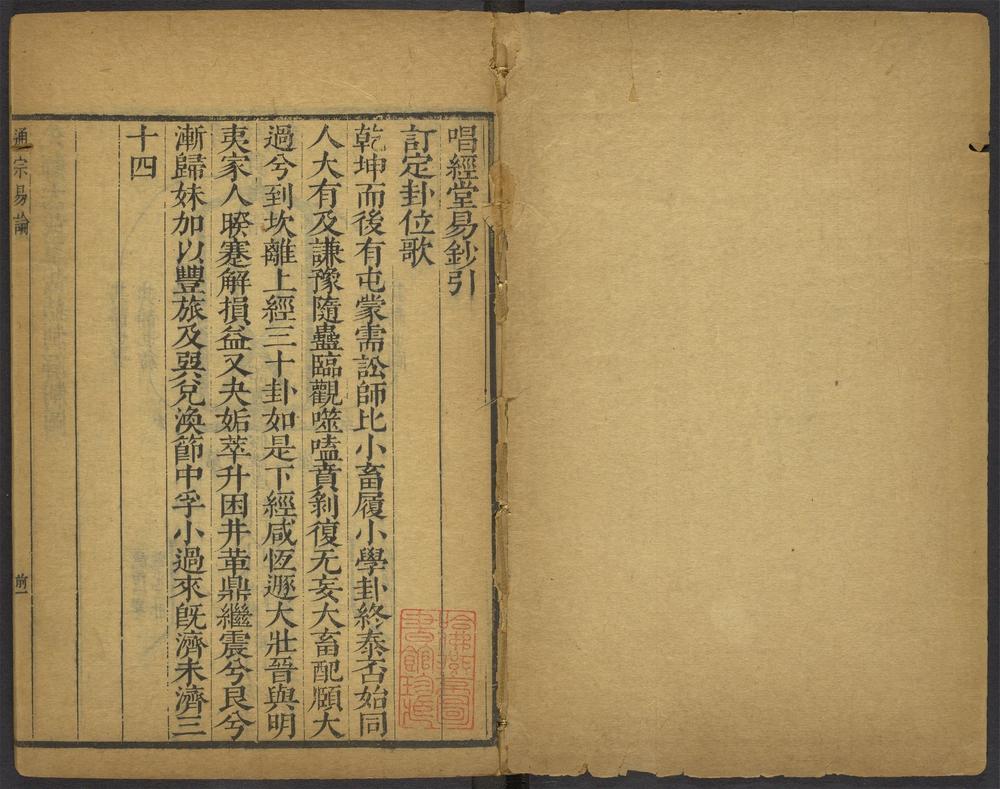 唱經堂易鈔引
訂定卦位歌
乾坤而後有屯蒙需訟師比小畜履小學卦終泰否始同
人大有及謙豫隨蠱臨觀噬嗑賁剝復无妄大畜配頤大
過兮到坎離上經三十卦如是下經咸恆遯大壯晉與明
夷家人睽蹇解損益又夬姤萃升困井革鼎繼震兮艮兮
漸歸妹加以豐旅及巽兌渙節中孚小過來旣濟未濟三
十四
通宗易論
前一
哈佛燕京圖
書館珍藏